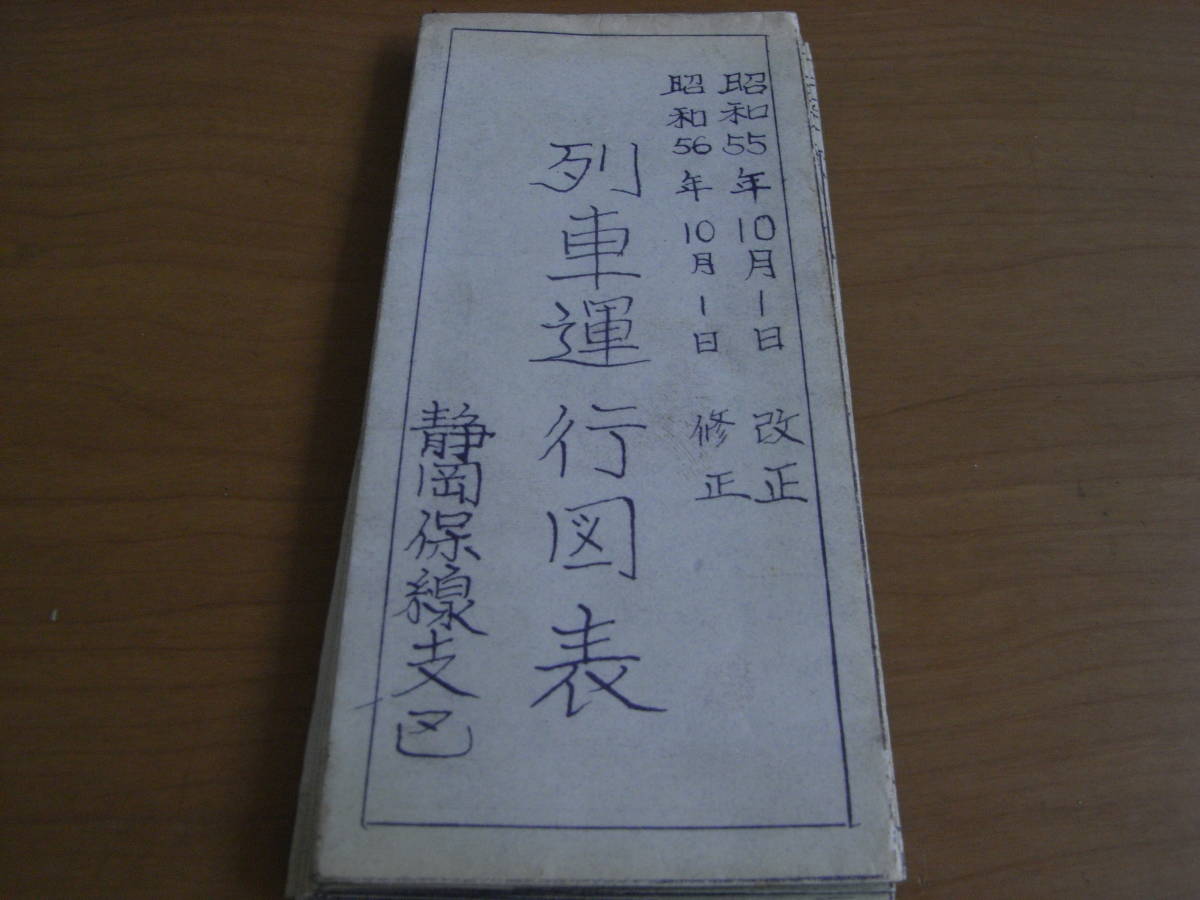 昭和55年10月1日 改正
昭和56年10月1日 修正
列車運行図表
静岡保線支区